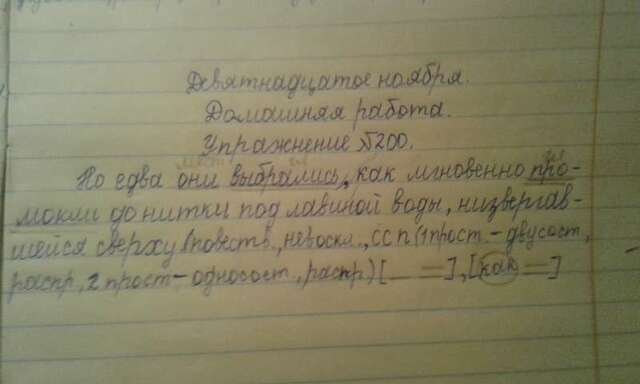 Девятнадцатое ноября.
Домашняя работа.
Упражнение №200.
Но едва они выбрались, как мгновенно про-
мокли до нитки под лавиной воды, низвергав-
шейся сверху (повеств., невоскл., ССП (1 прост. – двусост,
распр, 2 прост – односост, распр.) [__ ═], [как ═]